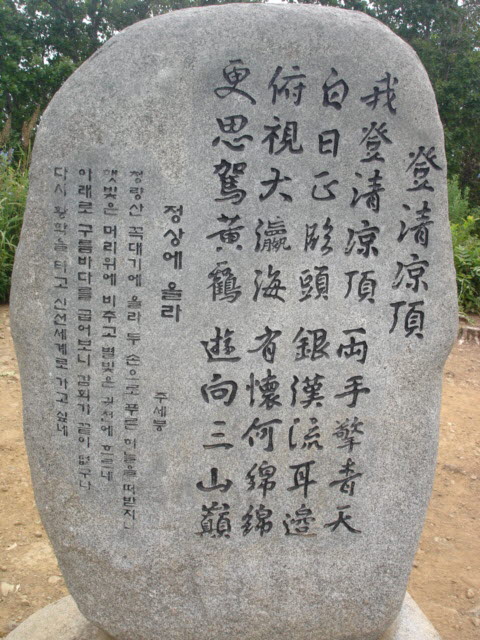 登清凉頂
我登清凉頂 兩手擎青天
白日正臨頭 銀漢流耳邊
俯視大瀛海 有懷何綿綿
更思駕黃鶴 遊向三山巔
정상에 올라
주세붕
청량산 꼭대기에 올라 두 손으로 푸른 하늘을 떠받치니
햇빛은 머리위에 비추고 별빛은 귓전에 흐르네
아래로 구름바다를 굽어보니 감회가 끝이 없구나
다시 황학을 타고 신선세계로 가고 싶네